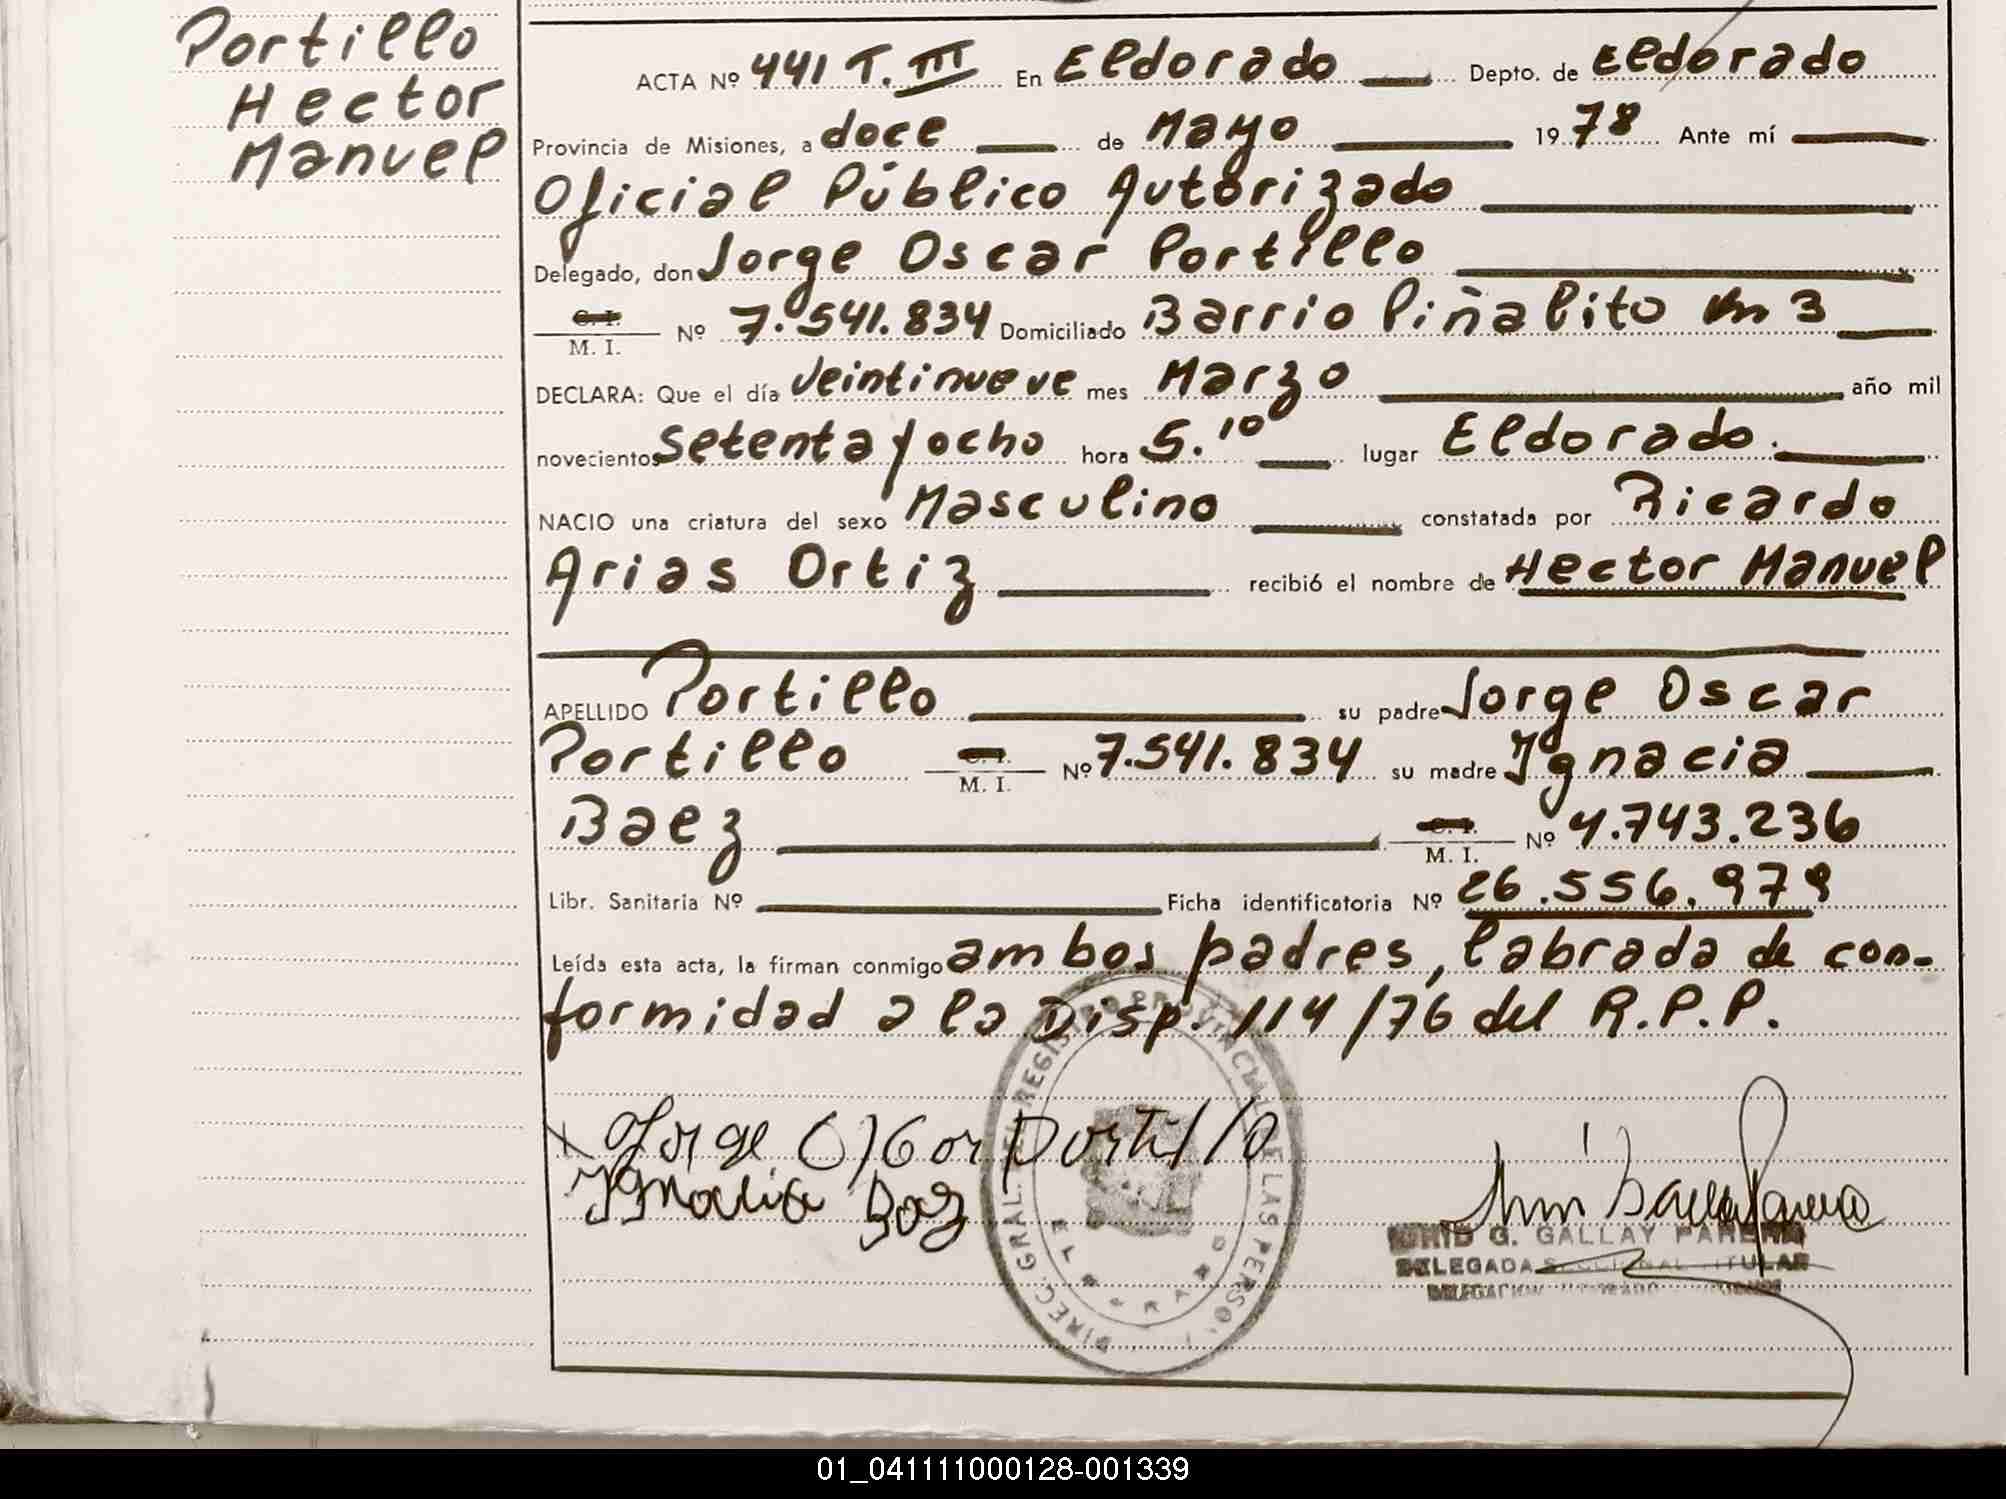 Portillo
Hector
Manuel
ACTA Nº 441 T. III En Eldorado Depto. de Eldorado
Provincia de Misiones, a doce de Mayo 1978 Ante mí
Oficial Público Autorizado
Delegado, don Jorge Oscar Portillo
C. I.
M. I. Nº 7.541.834 Domiciliado Barrio Piñalito Km 3
DECLARA: Que el día veintinueve mes Marzo año mil
novecientos setenta y ocho hora 5.10 lugar Eldorado.
NACIO una criatura del sexo Masculino constatada por Ricardo
Arias Ortiz recibió el nombre de Hector Manuel
APELLIDO Portillo su padre Jorge Oscar
Portillo C. I.
M. I. Nº 7.541.834 su madre Ignacia
Baez C. I.
M. I. Nº 4.743.236
Libr. Sanitaria Nº Ficha identificatoria Nº 26.556.979
Leída esta acta, la firman conmigo ambos padres, labrada de con-
formidad a la Disp. 114/76 del R.P.P.
DIREC. GRAL. DEL REGISTRO PROVINCIAL DE LAS PERSO
ELDORADO
Jorge Portillo
Ignacia Baez
G. GALLAY
DELEGADA TITULAR
01_041111000128-001339